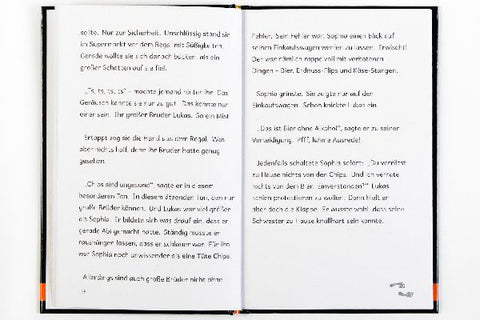 sollte. Nur zur Sicherheit. Unschlüssig stand sie
im Supermarkt vor dem Regal mit Süßigkeiten.
Gerade wollte sie sich danach bücken, als ein
großer Schatten auf sie fiel.
„Ts, ts, ts, ts“ – machte jemand hinter ihr. Das
Geräusch kannte sie nur zu gut. Das konnte nur
einer sein. Ihr großer Bruder Lukas. So ein Mist
Ertappt zog sie die Hand aus dem Regal. Was
aber nichts half, denn ihr Bruder hatte genug
gesehen.
„Chips sind ungesund“, sagte er in diesem
besonderen Ton. In diesem ätzenden Ton, den nur
große Brüder können. Und Lukas war viel größer
als Sophia. Er bildete sich was drauf ein, dass er
gerade Abi gemacht hatte. Ständig musste er
raushängen lassen, dass er schlauer war. Für ihn
war Sophia noch unwissender als eine Tüte Chips.
Allerdings sind auch große Brüder nicht ohne
Fehler. Sein Fehler war, Sophia einen Blick auf
seinen Einkaufswagen werfen zu lassen. Erwischt!
Der war nämlich rappelvoll mit verbotenen
Dingen – Bier, Erdnuss-Flips und Käse-Stangen.
Sophia grinste. Sie zeigte nur auf den
Einkaufswagen. Schon knickte Lukas ein.
„Das ist Bier ohne Alkohol“, sagte er zu seiner
Verteidigung. Pfff, lahme Ausrede!
Jedenfalls schaltete Sophia sofort: „Du verrätst
zu Hause nichts von den Chips. Und ich verrate
nichts von dem Bier. Einverstanden?“ Lukas
schien protestieren zu wollen. Dann hielt er
aber doch die Klappe. Er wusste wohl, dass seine
Schwester zu Hause knallhart sein konnte.